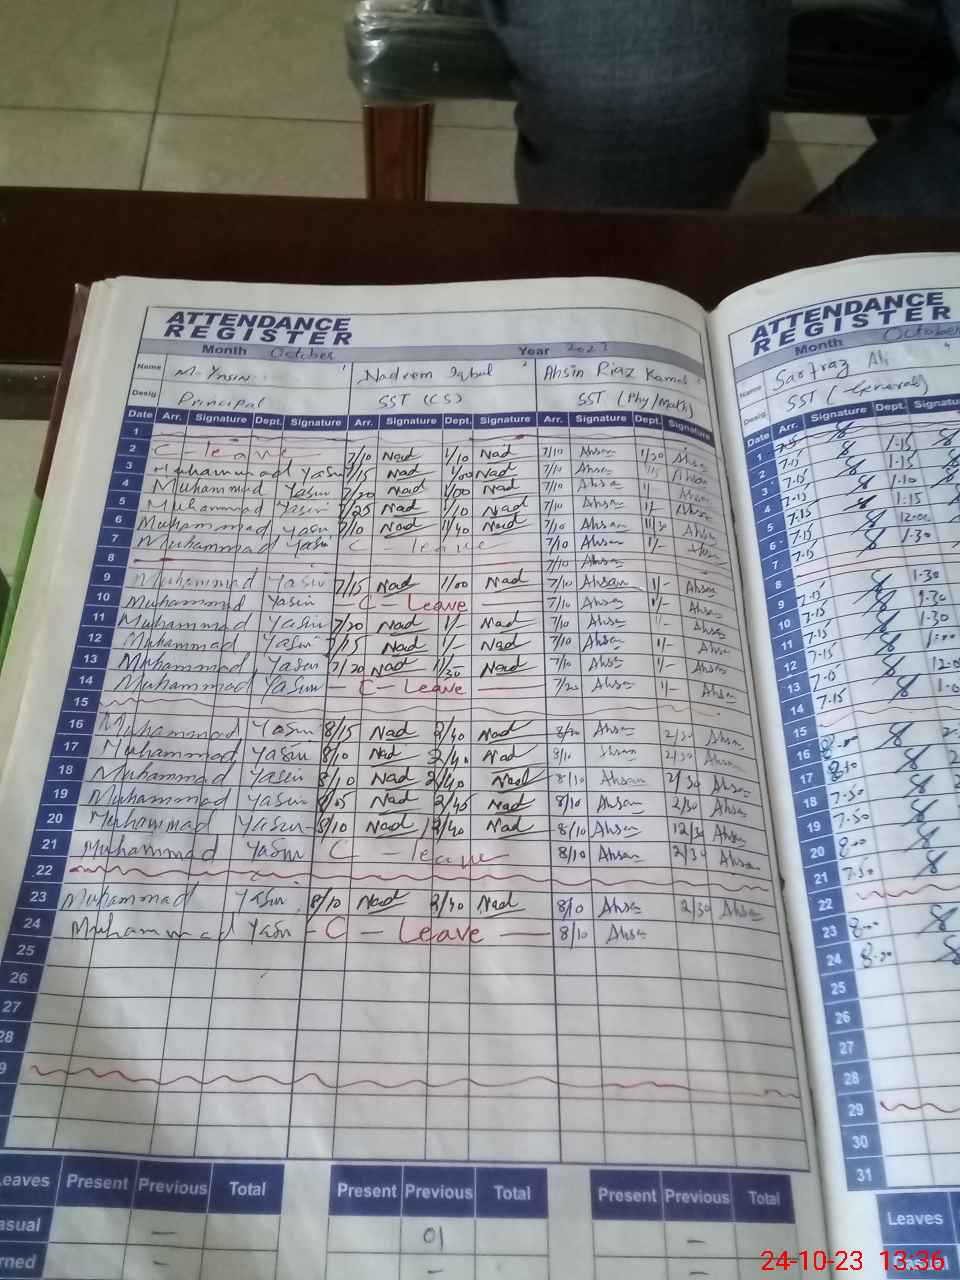 ATTENDANCE
REGISTER
Month October Year 2023
Name M. Yasin Nadeem Iqbal Ahsin Riaz Kamal
Desig. Principal SST (CS) SST (Phy/Math)
Date Arr. Signature Dept. Signature Arr. Signature Dept. Signature Arr. Signature Dept. Signature
1
2 C - leave 7/10 Nad 1/10 Nad 7/10 Ahsan 1/20 Ahsan
3 Muhammad Yasin 7/15 Nad 1/00 Nad 7/10 Ahsan 1/15 Ahsan
4 Muhammad Yasin 7/20 Nad 1/00 Nad 7/10 Ahsan 1/- Ahsan
5 Muhammad Yasin 7/25 Nad 1/10 Nad 7/10 Ahsan 1/- Ahsan
6 Muhammad Yasin 7/10 Nad 11/40 Nad 7/10 Ahsan 11/30 Ahsan
7 Muhammad Yasin C - leave 7/10 Ahsan 1/- Ahsan
8 7/10 Ahsan
9 Muhammad Yasin 7/15 Nad 1/00 Nad 7/10 Ahsan 1/- Ahsan
10 Muhammad Yasin - C - Leave 7/10 Ahsan 1/- Ahsan
11 Muhammad Yasin 7/20 Nad 1/- Nad 7/10 Ahsan 1/- Ahsan
12 Muhammad Yasin 7/15 Nad 1/- Nad 7/10 Ahsan 1/- Ahsan
13 Muhammad Yasin 7/20 Nad Nad 7/10 Ahsan 1/- Ahsan
14 Muhammad Yasin - C - Leave 7/20 Ahsan 1/- Ahsan
15
16 Muhammad Yasin 8/15 Nad 2/40 Nad Ahsan 2/30 Ahsan
17 Muhammad Yasin 8/10 Nad 2/40 Nad 8/10 Ahsan 2/30 Ahsan
18 Muhammad Yasin 8/10 Nad 2/40 Nad 8/10 Ahsan 2/30 Ahsan
19 Muhammad Yasin 8/05 Nad 2/45 Nad 8/10 Ahsan 2/30 Ahsan
20 Muhammad Yasin 8/10 Nad 12/40 Nad 8/10 Ahsan 12/30 Ahsan
21 Muhammad Yasin C - leave 8/10 Ahsan 2/30 Ahsan
22
23 Muhammad Yasin 8/10 Nad 2/40 Nad 8/10 Ahsan 2/30 Ahsan
24 Muhammad Yasin - C - Leave 8/10 Ahsan
25
26
27
28
9
Leaves Present Previous Total Present Previous Total Present Previous Total
asual - 01 -
rned - - -
ATTENDANCE
REGISTER
Month October
Name Sarfraz Ali
Desig. SST (General)
Date Arr. Signature Dept. Signatu
1 7-15 1-15
2 7-15 1-15
3 7-15 1-10
4 7-15 1-15
5 7-15 12-00
6 7-15 1-30
7
8 1-30
9 7-15 1-30
10 7-15 1-30
11 7-15 1-00
12 7-15 12-0
13 7-15 1-0
14
15
16 8-00 2-
17 8-10
18 7-50
19 7-50
20 8-00
21 7-50
22
23 8-00
24 8-00
25
26
27
28
29
30
31
Leaves
24-10-23 13:36